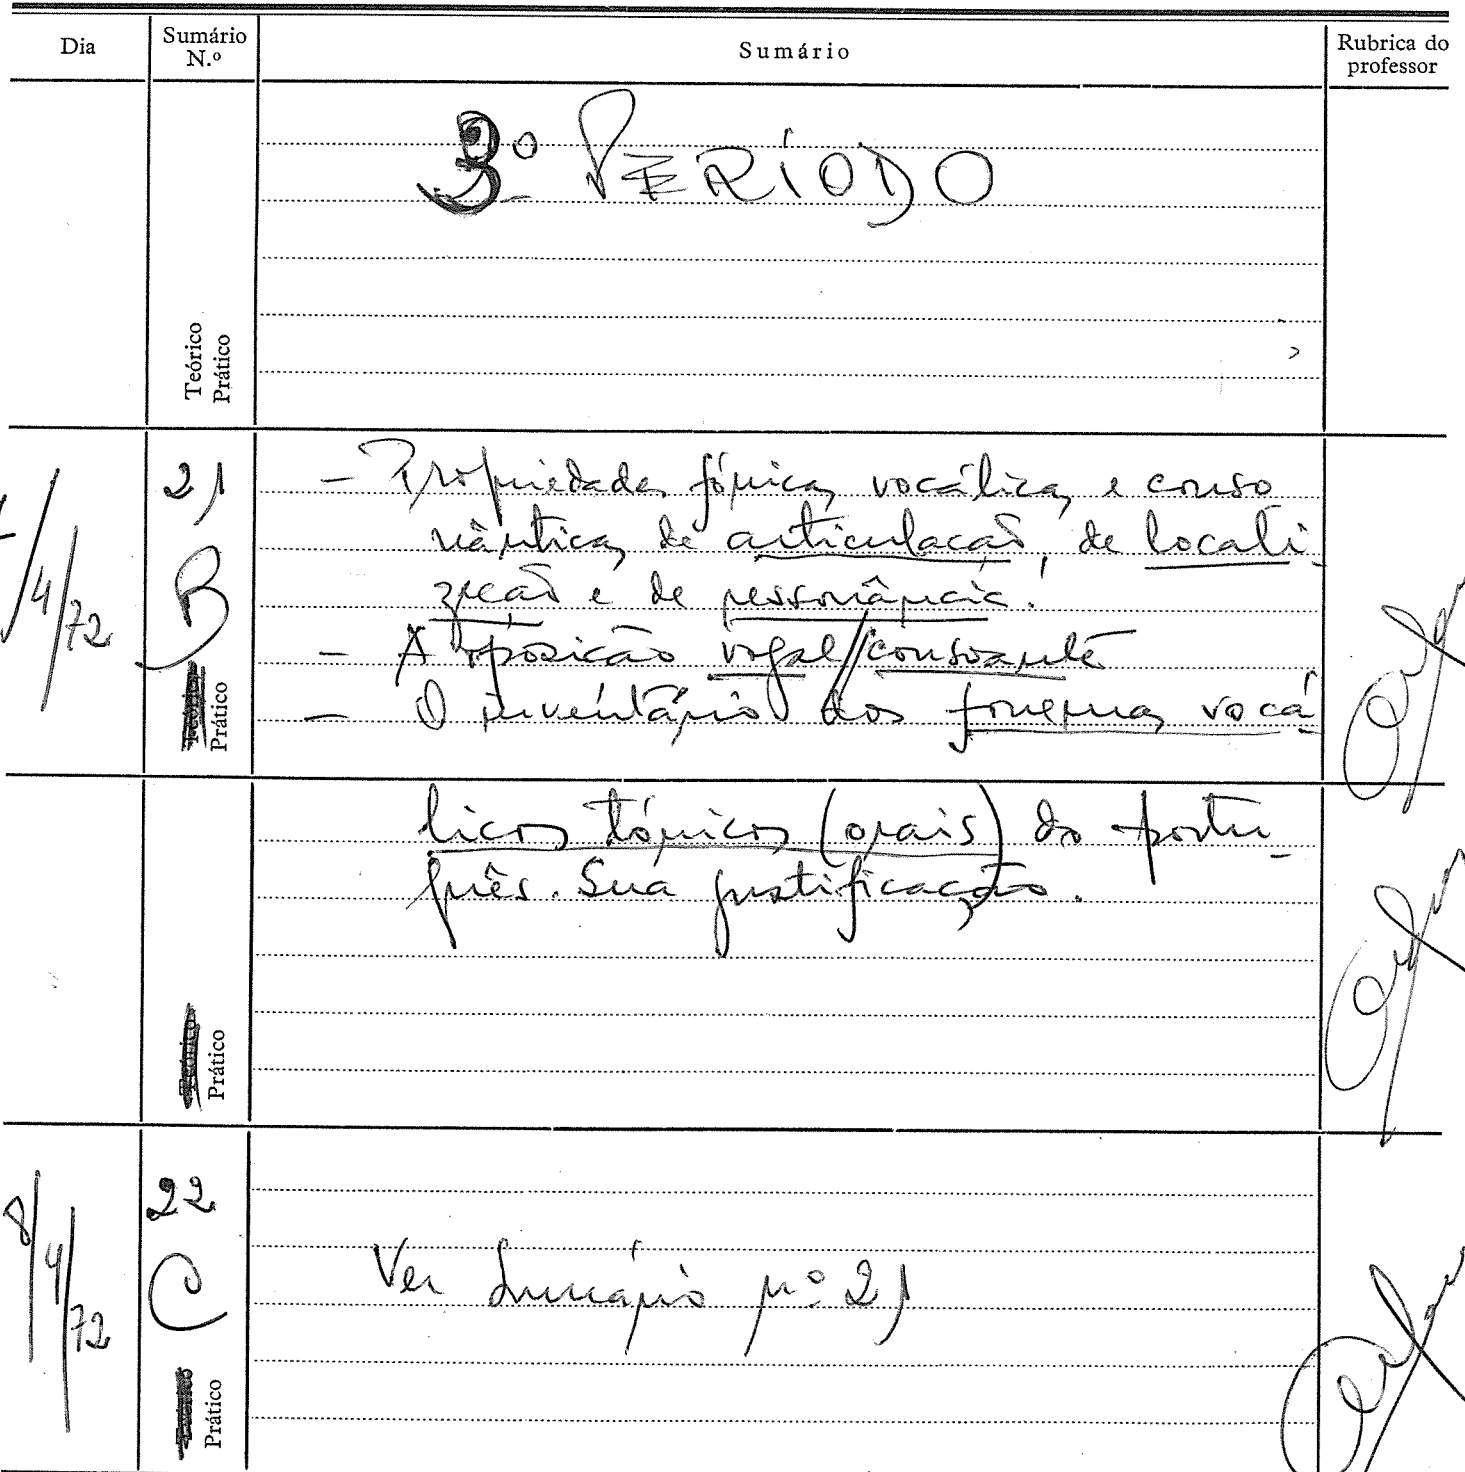 Dia
Sumário N.º
Sumário
Rubrica do professor
3º PERÍODO
Teórico
Prático
/4/72
21
B
Prático
- Propriedades fónicas vocálicas e conso
nânticas de articulação, de locali-
zação e de ressonância.
- A oposição vogal/consoante
- O inventário dos fonemas vocá
licos tónicos (orais) do portu-
guês. Sua justificação.
Prático
8/4/72
22
C
Prático
Ver Sumário nº 21